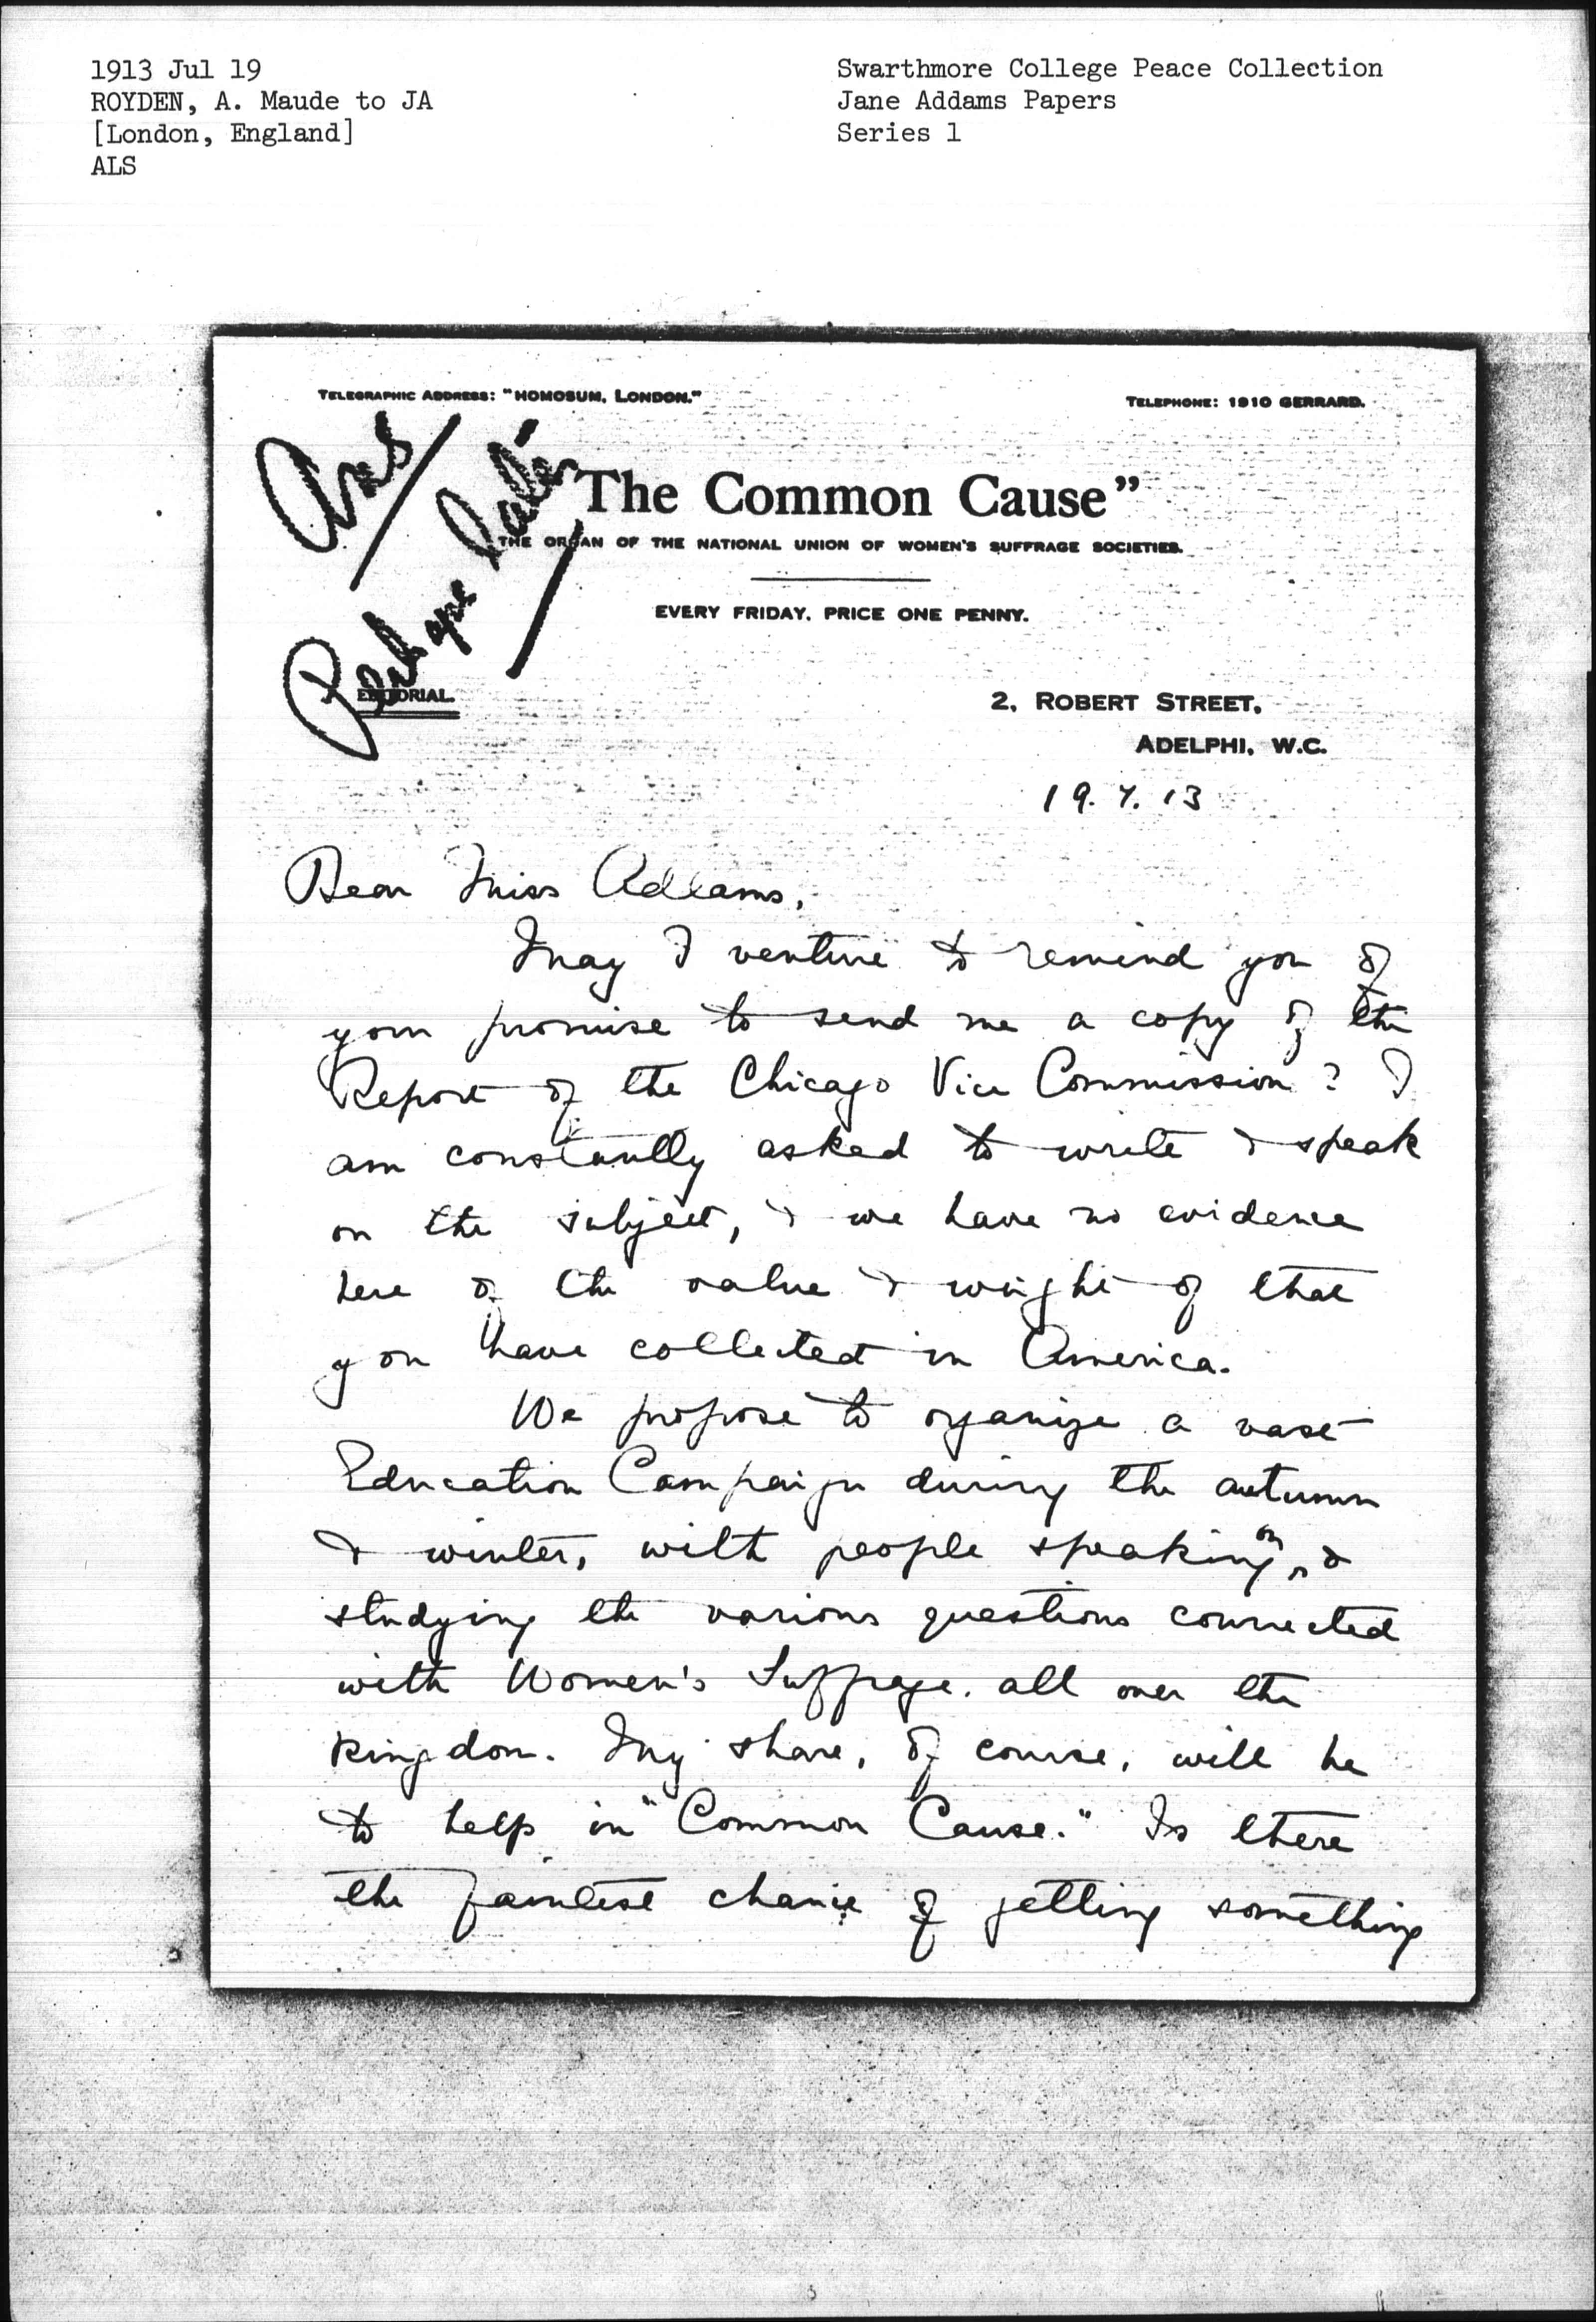 1913 Jul 19
ROYDEN, A. Maude to JA
[London, England]
ALS
Swarthmore College Peace Collection
Jane Addams Papers
Series 1
TELEGRAPHIC ADDRESS: "HOMOSUM, LONDON."
TELEPHONE: 1910 GERRARD.
Ans
Perhaps later
"The Common Cause"
THE ORGAN OF THE NATIONAL UNION OF WOMEN'S SUFFRAGE SOCIETIES.
EVERY FRIDAY. PRICE ONE PENNY.
EDITORIAL.
2, ROBERT STREET,
ADELPHI, W.C.
19. 7. 13
Dear Miss Addams,
May I venture to remind you of
your promise to send me a copy of the
Report of the Chicago Vice Commission? I
am constantly asked to write & speak
on the subject, & we have no evidence
here of the value & weight of that
you have collected in America.
We propose to organize a vast
Education Campaign during the autumn
& winter, with people speaking on, &
studying the various questions connected
with Women's Suffrage. all over the
kingdom. My share, of course, will be
to help in "Common Cause." Is there
the faintest chance of getting something